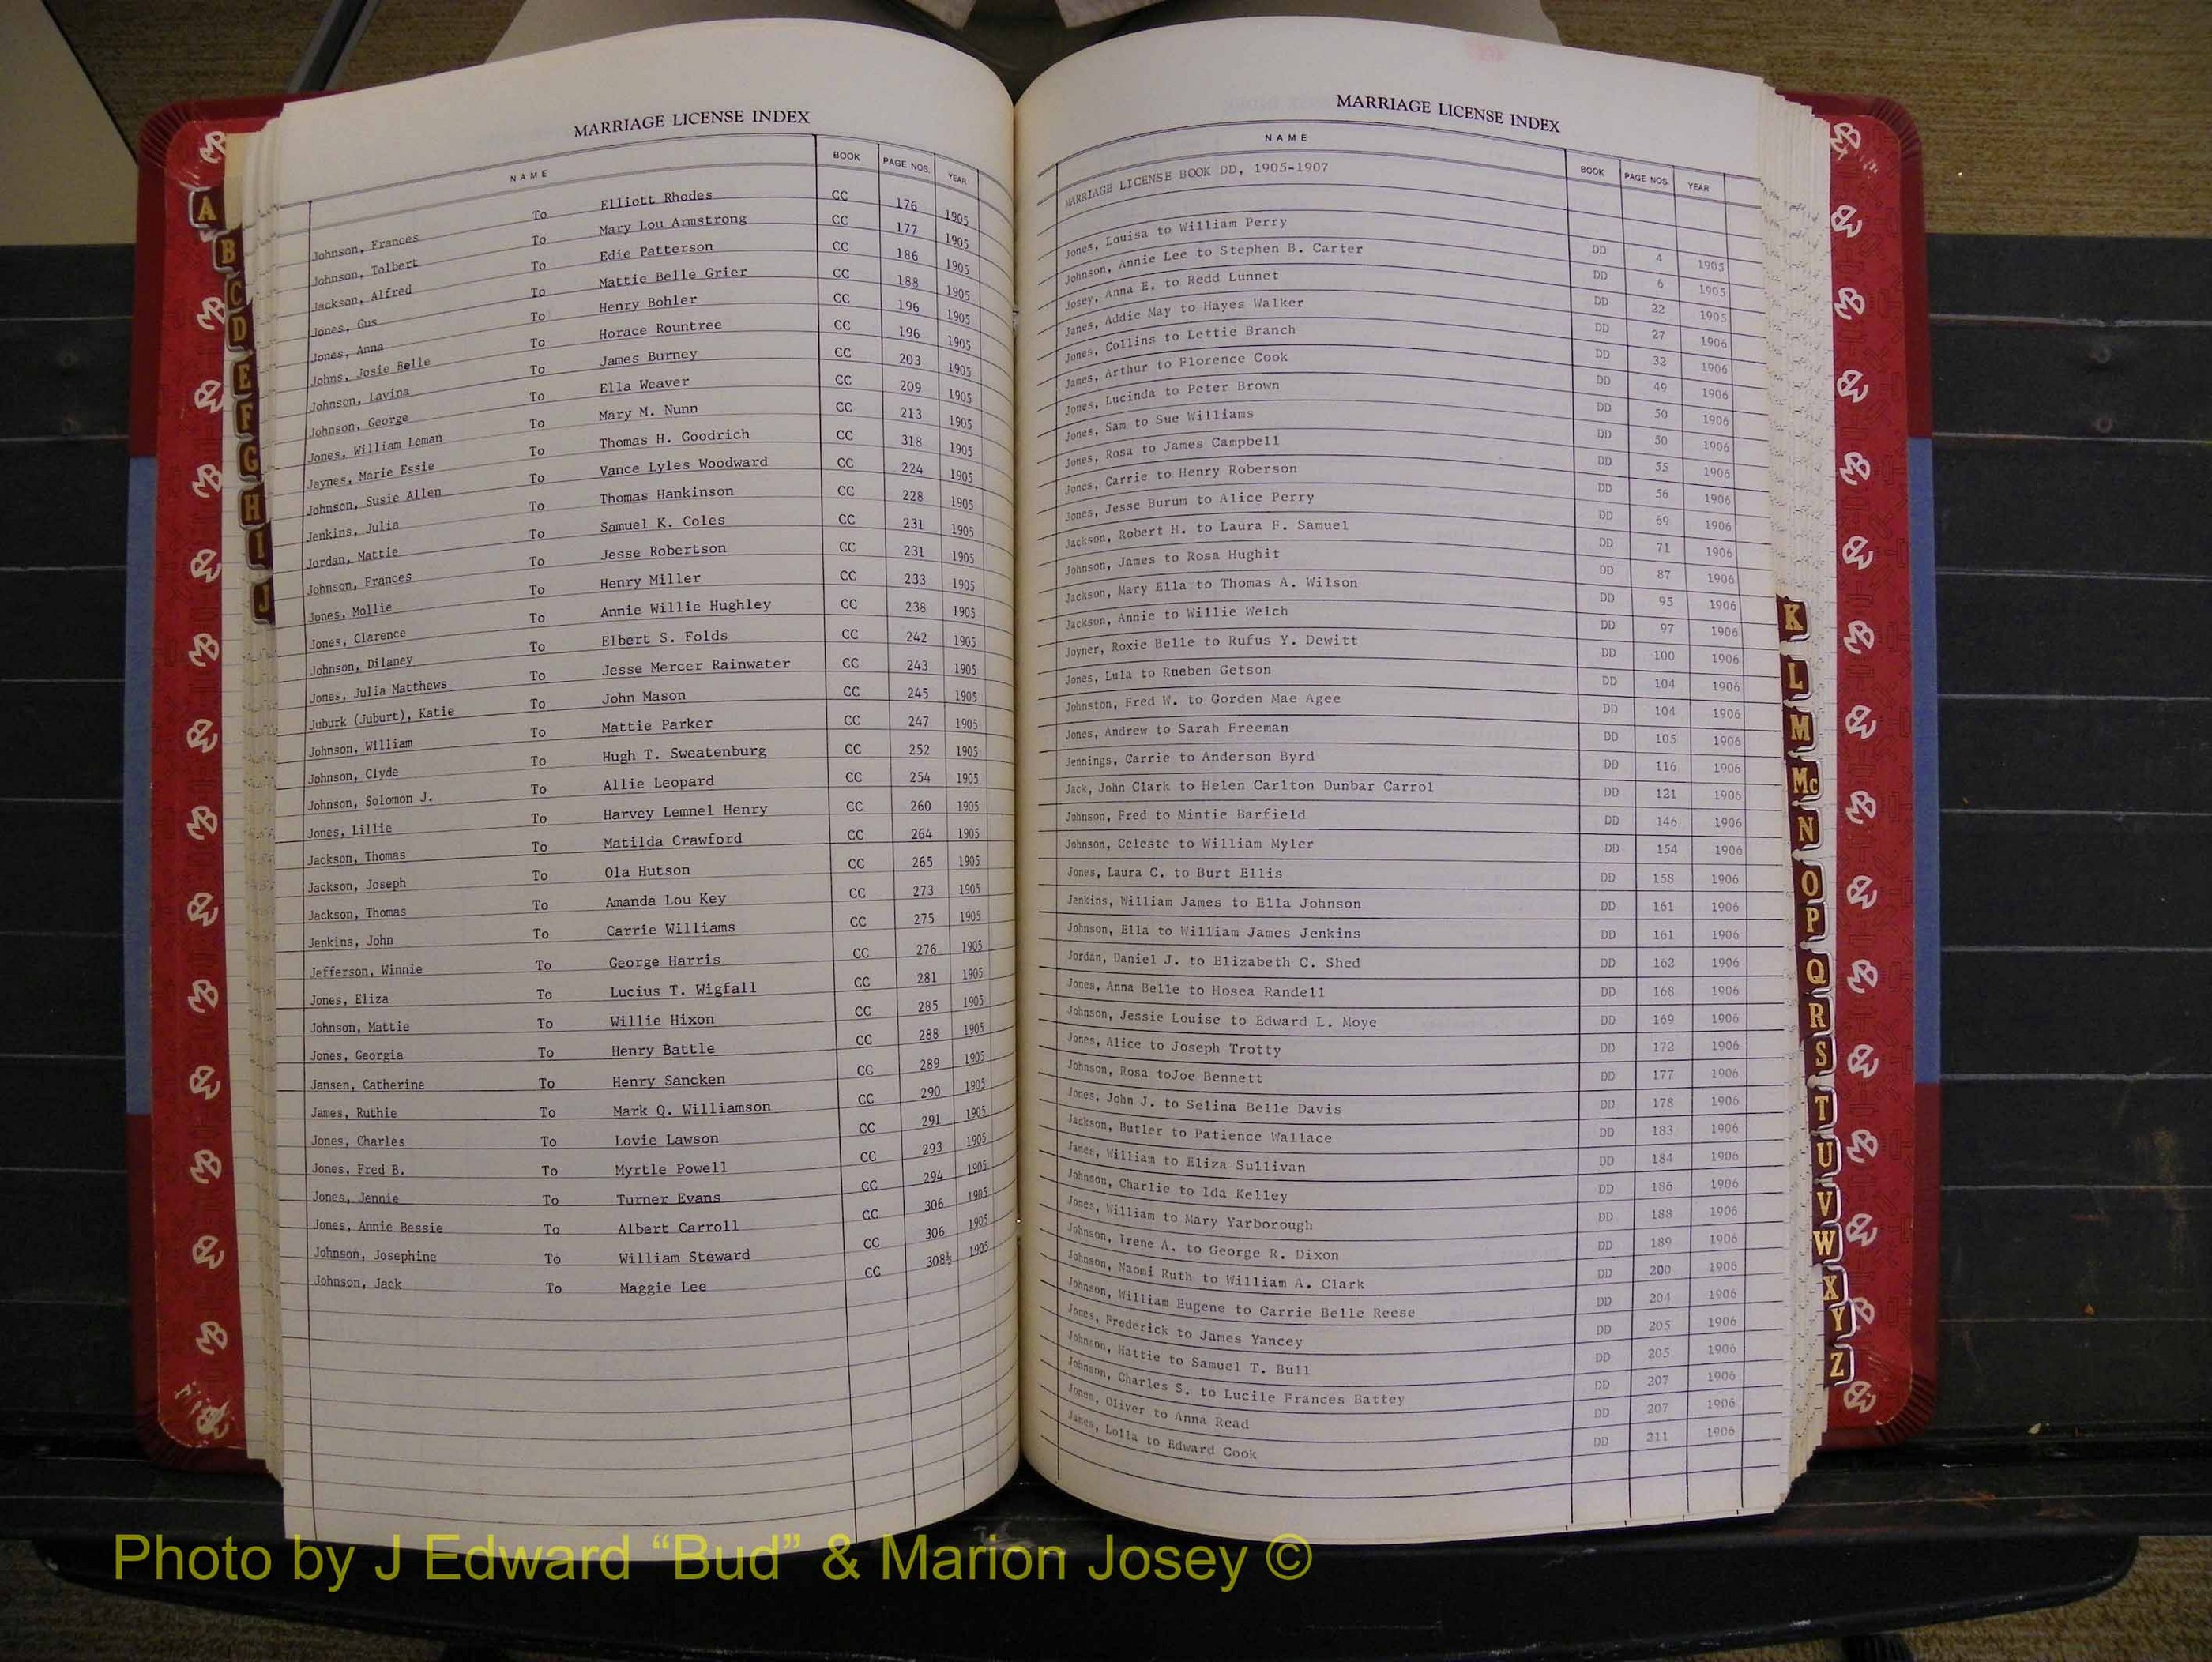 MARRIAGE LICENSE INDEX
NAME BOOK PAGE NOS. YEAR
Johnson, Frances To Elliott Rhodes CC 176 1905
Johnson, Tolbert To Mary Lou Armstrong CC 177 1905
Jackson, Alfred To Edie Patterson CC 186 1905
Jones, Gus To Mattie Belle Grier CC 188 1905
Jones, Anna To Henry Bohler CC 196 1905
Johns, Josie Belle To Horace Rountree CC 196 1905
Johnson, Lavina To James Burney CC 203 1905
Johnson, George To Ella Weaver CC 209 1905
Jones, William Leman To Mary M. Nunn CC 213 1905
Jaynes, Marie Essie To Thomas H. Goodrich CC 318 1905
Johnson, Susie Allen To Vance Lyles Woodward CC 224 1905
Jenkins, Julia To Thomas Hankinson CC 228 1905
Jordan, Mattie To Samuel K. Coles CC 231 1905
Johnson, Frances To Jesse Robertson CC 231 1905
Jones, Mollie To Henry Miller CC 233 1905
Jones, Clarence To Annie Willie Hughley CC 238 1905
Johnson, Dilaney To Elbert S. Folds CC 242 1905
Jones, Julia Matthews To Jesse Mercer Rainwater CC 243 1905
Juburk (Juburt), Katie To John Mason CC 245 1905
Johnson, William To Mattie Parker CC 247 1905
Johnson, Clyde To Hugh T. Sweatenburg CC 252 1905
Johnson, Solomon J. To Allie Leopard CC 254 1905
Jones, Lillie To Harvey Lemnel Henry CC 260 1905
Jackson, Thomas To Matilda Crawford CC 264 1905
Jackson, Joseph To Ola Hutson CC 265 1905
Jackson, Thomas To Amanda Lou Key CC 273 1905
Jenkins, John To Carrie Williams CC 275 1905
Jefferson, Winnie To George Harris CC 276 1905
Jones, Eliza To Lucius T. Wigfall CC 281 1905
Johnson, Mattie To Willie Hixon CC 285 1905
Jones, Georgia To Henry Battle CC 288 1905
Jansen, Catherine To Henry Sancken CC 289 1905
James, Ruthie To Mark Q. Williamson CC 290 1905
Jones, Charles To Lovie Lawson CC 291 1905
Jones, Fred B. To Myrtle Powell CC 293 1905
Jones, Jennie To Turner Evans CC 294 1905
Jones, Annie Bessie To Albert Carroll CC 306 1905
Johnson, Josephine To William Steward CC 306 1905
Johnson, Jack To Maggie Lee CC 308½ 1905
A
B
C
D
E
F
G
H
I
J
MARRIAGE LICENSE INDEX
NAME BOOK PAGE NOS. YEAR
MARRIAGE LICENSE BOOK DD, 1905-1907
Jones, Louisa to William Perry DD 4 1905
Johnson, Annie Lee to Stephen B. Carter DD 6 1905
Josey, Anna E. to Redd Lunnet DD 22 1905
Janes, Addie May to Hayes Walker DD 27 1906
Jones, Collins to Lettie Branch DD 32 1906
James, Arthur to Florence Cook DD 49 1906
Jones, Lucinda to Peter Brown DD 50 1906
Jones, Sam to Sue Williams DD 50 1906
Jones, Rosa to James Campbell DD 55 1906
Jones, Carrie to Henry Roberson DD 56 1906
Jones, Jesse Burum to Alice Perry DD 69 1906
Jackson, Robert H. to Laura F. Samuel DD 71 1906
Johnson, James to Rosa Hughit DD 87 1906
Jackson, Mary Ella to Thomas A. Wilson DD 95 1906
Jackson, Annie to Willie Welch DD 97 1906
Joyner, Roxie Belle to Rufus Y. Dewitt DD 100 1906
Jones, Lula to Rueben Getson DD 104 1906
Johnston, Fred W. to Gorden Mae Agee DD 104 1906
Jones, Andrew to Sarah Freeman DD 105 1906
Jennings, Carrie to Anderson Byrd DD 116 1906
Jack, John Clark to Helen Carlton Dunbar Carrol DD 121 1906
Johnson, Fred to Mintie Barfield DD 146 1906
Johnson, Celeste to William Myler DD 154 1906
Jones, Laura C. to Burt Ellis DD 158 1906
Jenkins, William James to Ella Johnson DD 161 1906
Johnson, Ella to William James Jenkins DD 161 1906
Jordan, Daniel J. to Elizabeth C. Shed DD 162 1906
Jones, Anna Belle to Hosea Randell DD 168 1906
Johnson, Jessie Louise to Edward L. Moye DD 169 1906
Jones, Alice to Joseph Trotty DD 172 1906
Johnson, Rosa toJoe Bennett DD 177 1906
Jones, John J. to Selina Belle Davis DD 178 1906
Jackson, Butler to Patience Wallace DD 183 1906
James, William to Eliza Sullivan DD 184 1906
Johnson, Charlie to Ida Kelley DD 186 1906
Jones, William to Mary Yarborough DD 188 1906
Johnson, Irene A. to George R. Dixon DD 189 1906
Johnson, Naomi Ruth to William A. Clark DD 200 1906
Johnson, William Eugene to Carrie Belle Reese DD 204 1906
Jones, Frederick to James Yancey DD 205 1906
Johnson, Hattie to Samuel T. Bull DD 205 1906
Johnson, Charles S. to Lucile Frances Battey DD 207 1906
Jones, Oliver to Anna Read DD 207 1906
James, Lolla to Edward Cook DD 211 1906
K
L
M
Mc
N
O
P
Q
R
S
T
U
V
W
X
Y
Z
Photo by J Edward “Bud” & Marion Josey ©